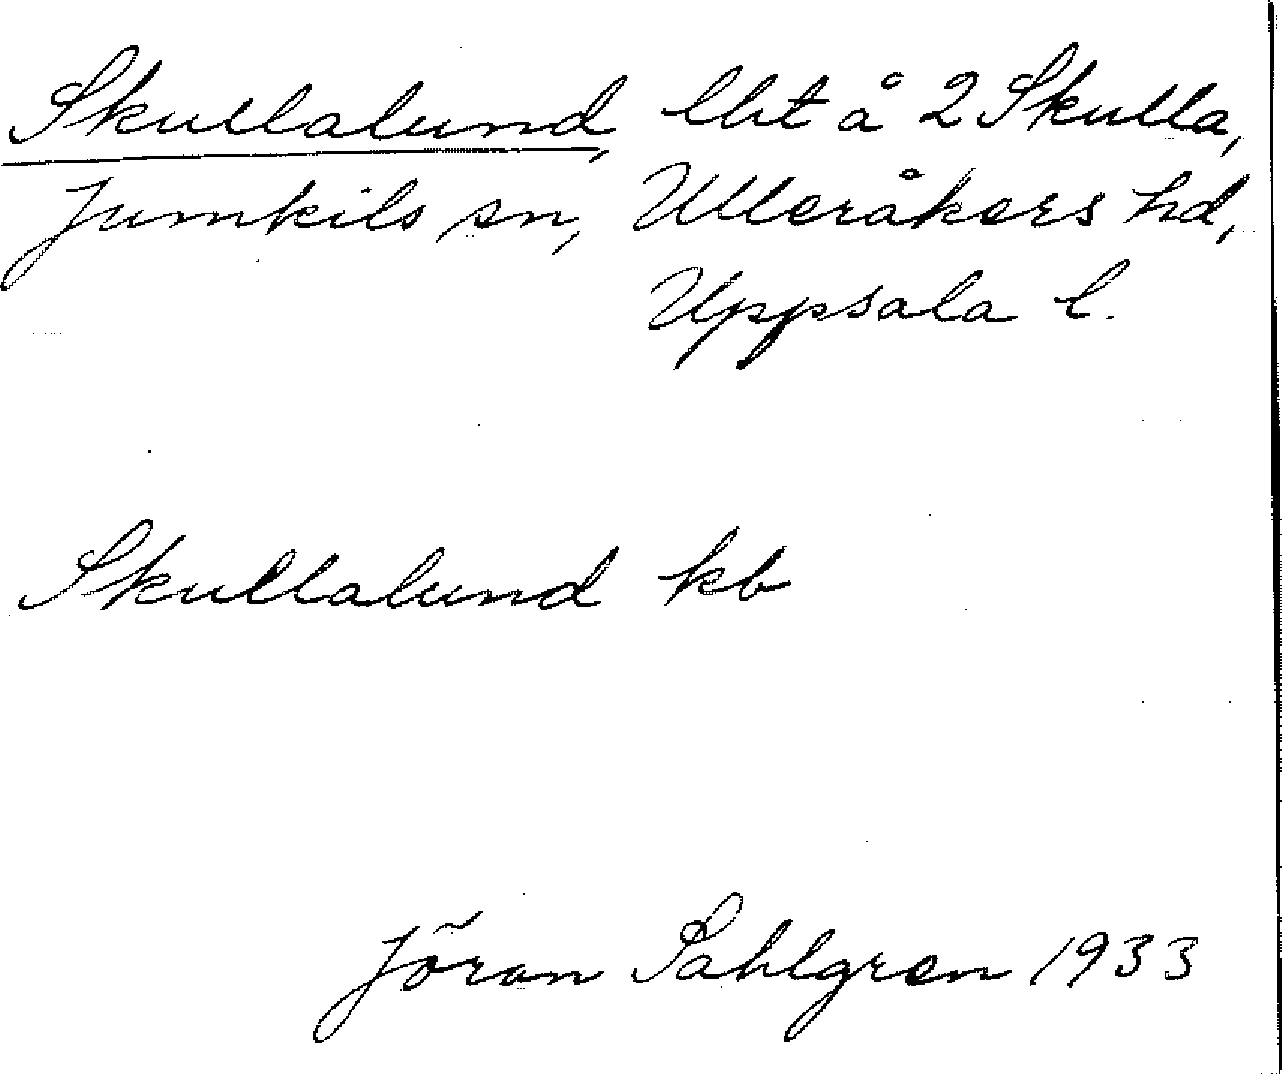 Skullalund, lht å 2 Skulla,
Jumkils sn, Ulleråkers hd,
Uppsala l.
Skullalund kb
Jöran Sahlgren 1933